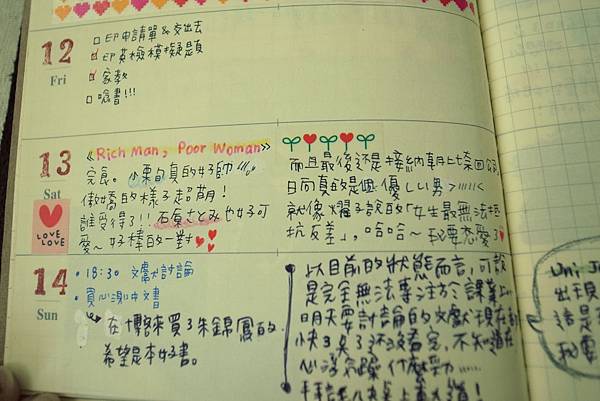 12
Fri
EP申請單&交出去
EP英檢模擬題
家教
唸書!!!
13
Sat
LOVE
LOVE
《Rich Man, Poor Woman》
完食。小栗旬真的好帥
傲嬌的樣子超萌!
誰受得了!! 石原さとみ也好可
愛~好棒的一對
而且最後還是接納朝比奈回
日向真的是個優しい男
就像耀子說的「女生最無法抵
抗反差」,哈哈~我要戀愛了
14
Sun
18:30 文獻討論
買心測中文書
在博客來買了朱錦鳳的
希望是本好書。
以目前的狀態而言,可說
是完全無法專注於課業上
明天要討論的文獻現在
快3點了還沒看完,不知道在
心浮氣躁什麼勁
Uni
出現
這是
我要